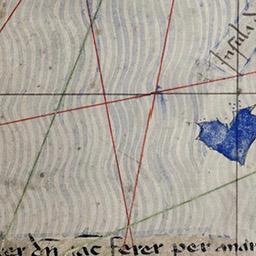 Insula d
er dñ jac ferer per anar